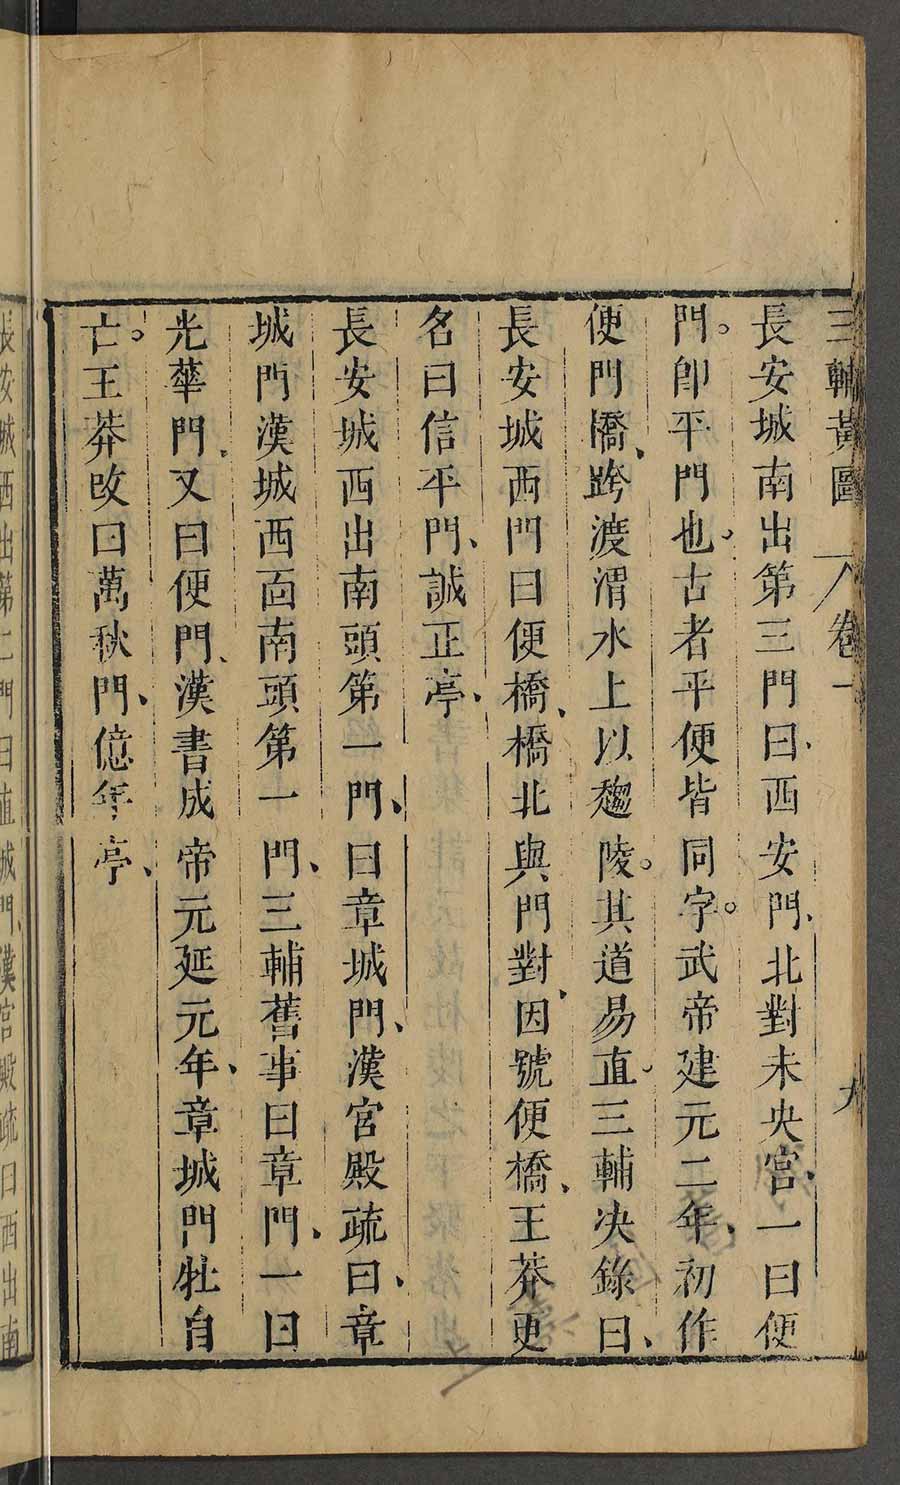 三輔黃圖 卷一 九
長安城南出第三門曰、西安門、北對未央宮、一曰便
門。卽平門也、古者平便皆同字。武帝建元二年、初作
便門橋、跨渡渭水上以趨陵。其道易直、三輔决錄曰、
長安城西門曰便橋、橋北與門對、因號便橋、王莽更
名曰信平門、誠正亭、
長安城西出南頭第一門、曰章城門、漢宮殿疏曰、章
城門漢城西面南頭第一門、三輔舊事曰章門、一曰
光華門、又曰便門、漢書成帝元延元年、章城門牡自
亡。王莽改曰萬秋門、億年亭、
長安城西出第二門曰直城門、漢宮殿疏曰西出南